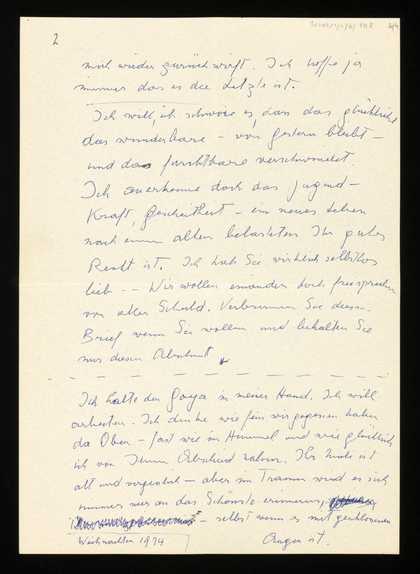 2
mich wieder zurück wirft. Ich hoffe ja
immer das es die letzte ist.
Ich will, ich schwöre es, dass das glückliche
das wunderbare – von gestern bleibt –
und das furchtbare verschwindet.
Ich anerkenne doch das Jugend–
Kraft, Gescheitheit – ein neues Leben
nach einem alten belasteten Ihr gutes
Recht ist. Ich hab Sie wirklich selbstlos
lieb – – Wir wollen einander doch freisprechen
von aller Schuld. Verbrennen Sie diesen
Brief wenn Sie wollen und behalten Sie
nur diesen Abschnitt
Ich halte den Goya in meiner Hand. Ich will
arbeiten. Ich denke wie fein wir gegessen haben
da Oben – fast wie im Himmel und wie glücklich
ich von Ihnen Abschied nahm. Ihr ist
alt und vergesslich – aber im Traume wird es sich
immer nur an das Schönste erinnern,
– selbst wenn es mit geschlossenen
Weihnachten 1974
Augen ist.